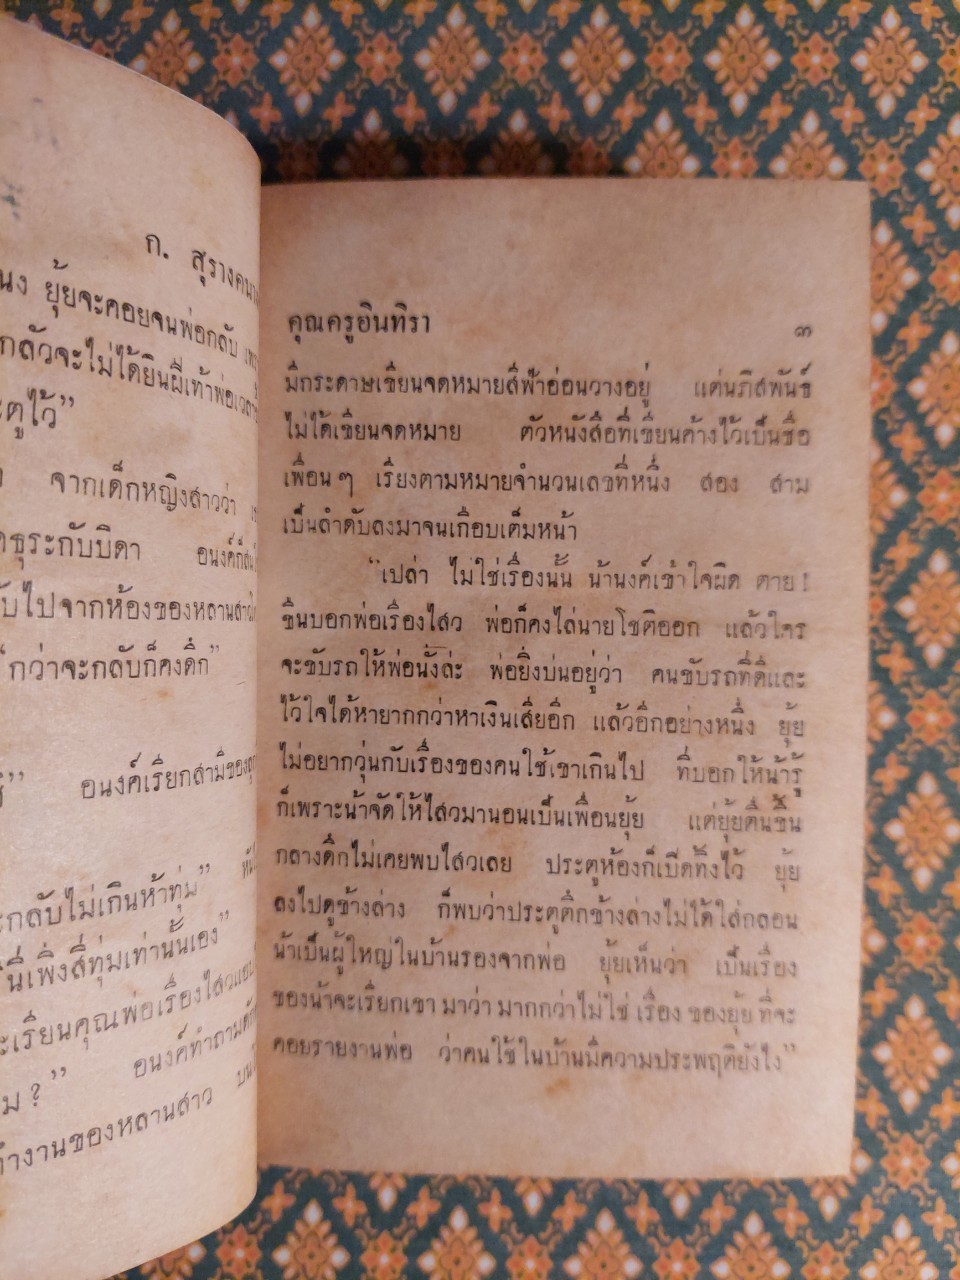 ก. สุรางคนา
นง ยุ้ยจะคอยจนพ่อกลับ
กลัวจะไม่ได้ยินฝีเท้าพ่อเวลา
ะตูไว้”
จากเด็กหญิงสาวว่า
ธุระกับบิดา อนงค์ก็
ับไปจากห้องของหลานสาว
กว่าจะกลับก็คงดึก”
อนงค์เรียกสามีของ
ะกลับไม่เกินห้าทุ่ม”
นี่เพิ่งสี่ทุ่มเท่านั้นเอง”
ะเรียนคุณพ่อเรื่องไสว
ม?” อนงค์ทำถาม
ทำงานของหลานสาว บน
คุณครูอินทิรา ๓
มีกระดาษเขียนจดหมายสีฟ้าอ่อนวางอยู่ แต่นภิสพันธ์
ไม่ได้เขียนจดหมาย ตัวหนังสือที่เขียนค้างไว้เป็นชื่อ
เพื่อนๆ เรียงตามหมายจำนวนเลขที่หนึ่ง สอง สาม
เป็นลำดับลงมาจนเกือบเต็มหน้า
“เปล่า ไม่ใช่เรื่องนั้น น้านงค์เข้าใจผิด ตาย!
ขืนบอกพ่อเรื่องไสว พ่อก็คงไล่นายโชติออก แล้วใคร
จะขับรถให้พ่อนั่งล่ะ พ่อยิ่งบ่นอยู่ว่า คนขับรถที่ดีและ
ไว้ใจได้หายากกว่าหาเงินเสียอีก แล้วอีกอย่างหนึ่ง ยุ้ย
ไม่อยากวุ่นกับเรื่องของคนใช้เขาเกินไป ที่บอกให้น้ารู้
ก็เพราะน้าจัดให้ไสวมานอนเป็นเพื่อนยุ้ย แต่ยุ้ยตื่นขึ้น
กลางดึกไม่เคยพบไสวเลย ประตูห้องก็เปิดทิ้งไว้ ยุ้ย
ลงไปดูข้างล่าง ก็พบว่าประตูตึกข้างล่างไม่ได้ใส่กลอน
น้าเป็นผู้ใหญ่ในบ้านรองจากพ่อ ยุ้ยเห็นว่า เป็นเรื่อง
ของน้าจะเรียกเขา มาว่า มากกว่าไม่ใช่ เรื่อง ของยุ้ย ที่จะ
คอยรายงานพ่อ ว่าคนใช้ในบ้านมีความประพฤติยังไง”